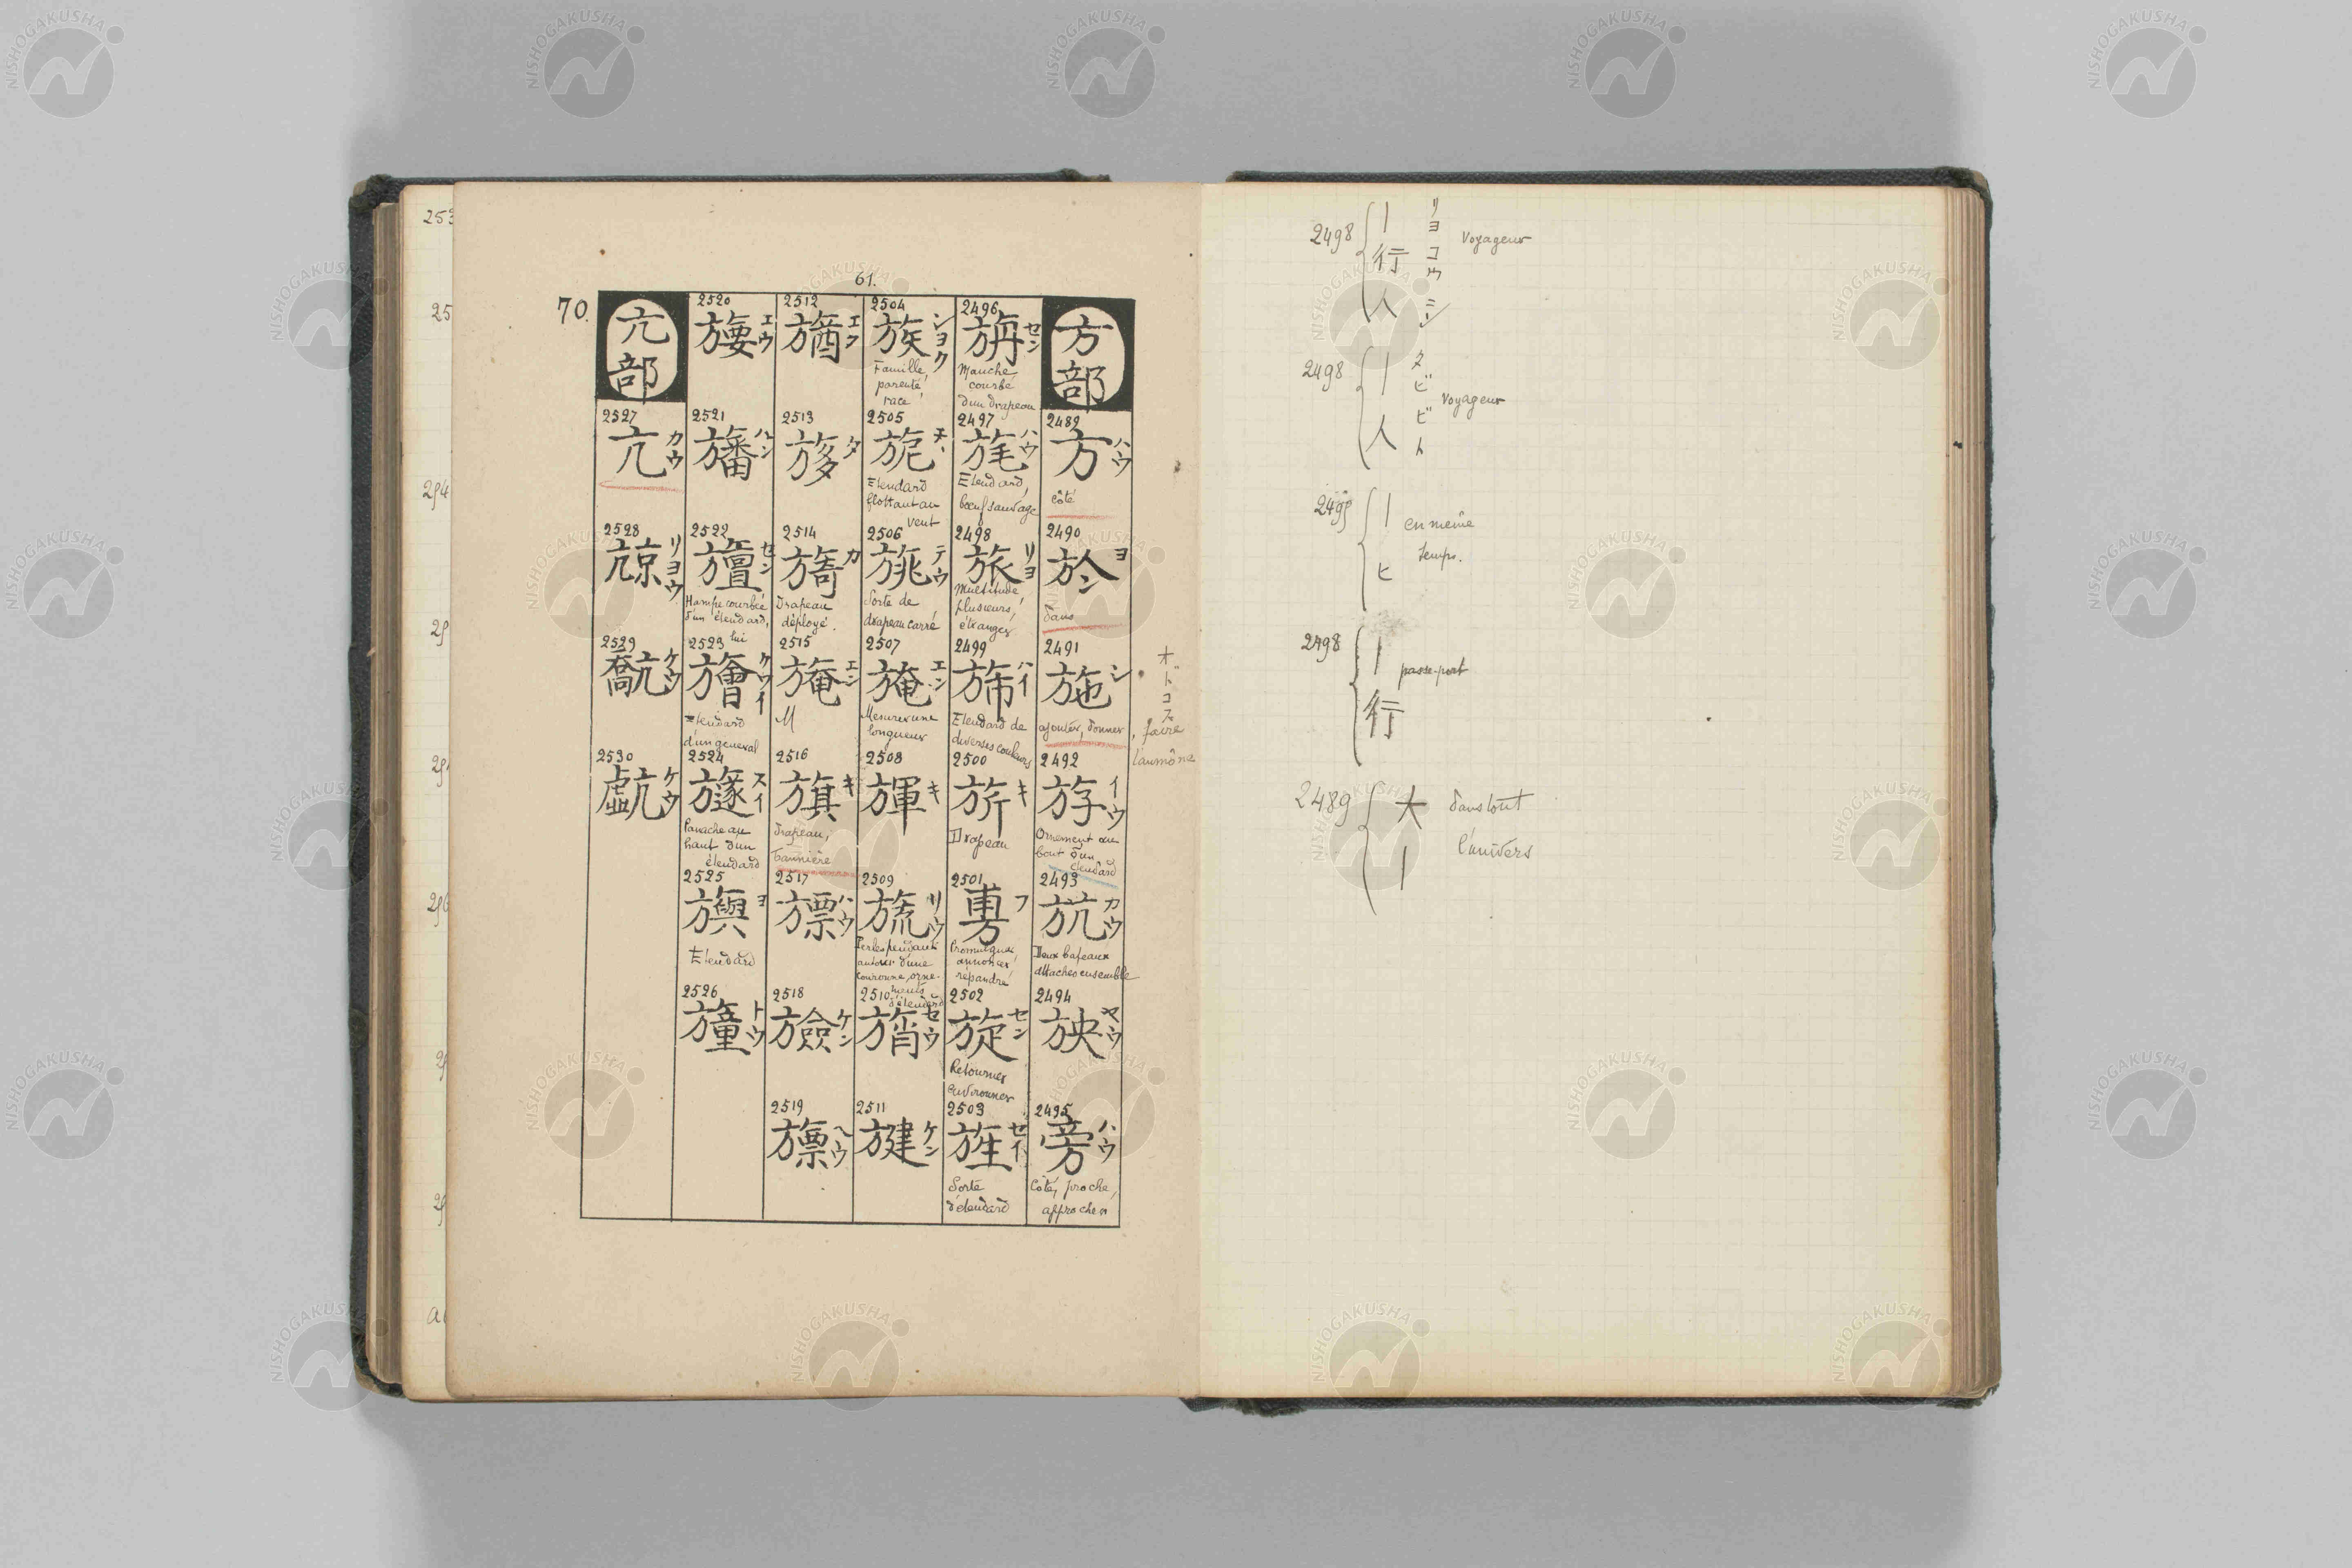 61.
70.
方部
2489
方 ハウ
côté
2490
於 ヨ
dans
2491
施 シ
ajouter, donner, faire
l'aumône
2492
斿 イウ
Ornement au
bout d'un
étendard
2493
㫄 カウ
Deux bateaux
attachés ensemble
2494
ヤウ
2495
旁 ハウ
Côté, proche,
approcher
2496
旃 セン
Manche
courbé
d'un drapeau
2497
旄 ハウ
Etendard,
bœuf sauvage
2498
旅 リヨ
Multitude
plusieurs,
étranger
2499
旆 ハイ
Etendard de
diverses couleurs
2500
旂 キ
Drapeau
2501
旉 フ
Promulguer,
annoncer
répandre
2502
旋 セン
Retourner
environner
2503
旌 セイ
Sorte
d'étendard
2504
族 シヨク
Famille,
parenté
race
2505
旎
Etendard
flottant au
vent
2506
旐 テウ
Sorte de
drapeau carré
2507
エン
Mesurer une
longueur
2508
キ
2509
旒 リウ
Perles pendant
autour d'une
couronne, orne-
ments
d'étendard
2510
旓 セウ
2511
ケン
2512
2513
タ
2514
旖 カ
Drapeau
déployé.
2515
エン
2516
旗 キ
Drapeau,
bannière
2517
ハウ
2518
ケン
2519
ヘウ
2520
エウ
2521
旛 ハン
2522
旜 セン
Hampe courbée
d'un étendard,
2523
旝 クワイ
Etendard
d'un général
2524
旞 スイ
Panache au
haut d'un
étendard
2525
旟 ヨ
Etendard
2526
トウ
亢部
2527
亢 カウ
2528
リヨウ
2529
ケウ
2530
ケウ
2498
行
人
リヨコウニン
Voyageur
2498
人
タビビト
Voyageur
en même
temps.
ヒ
2498
行
passe-port
2489
大
dans tout
l'univers
NISHOGAKUSHA